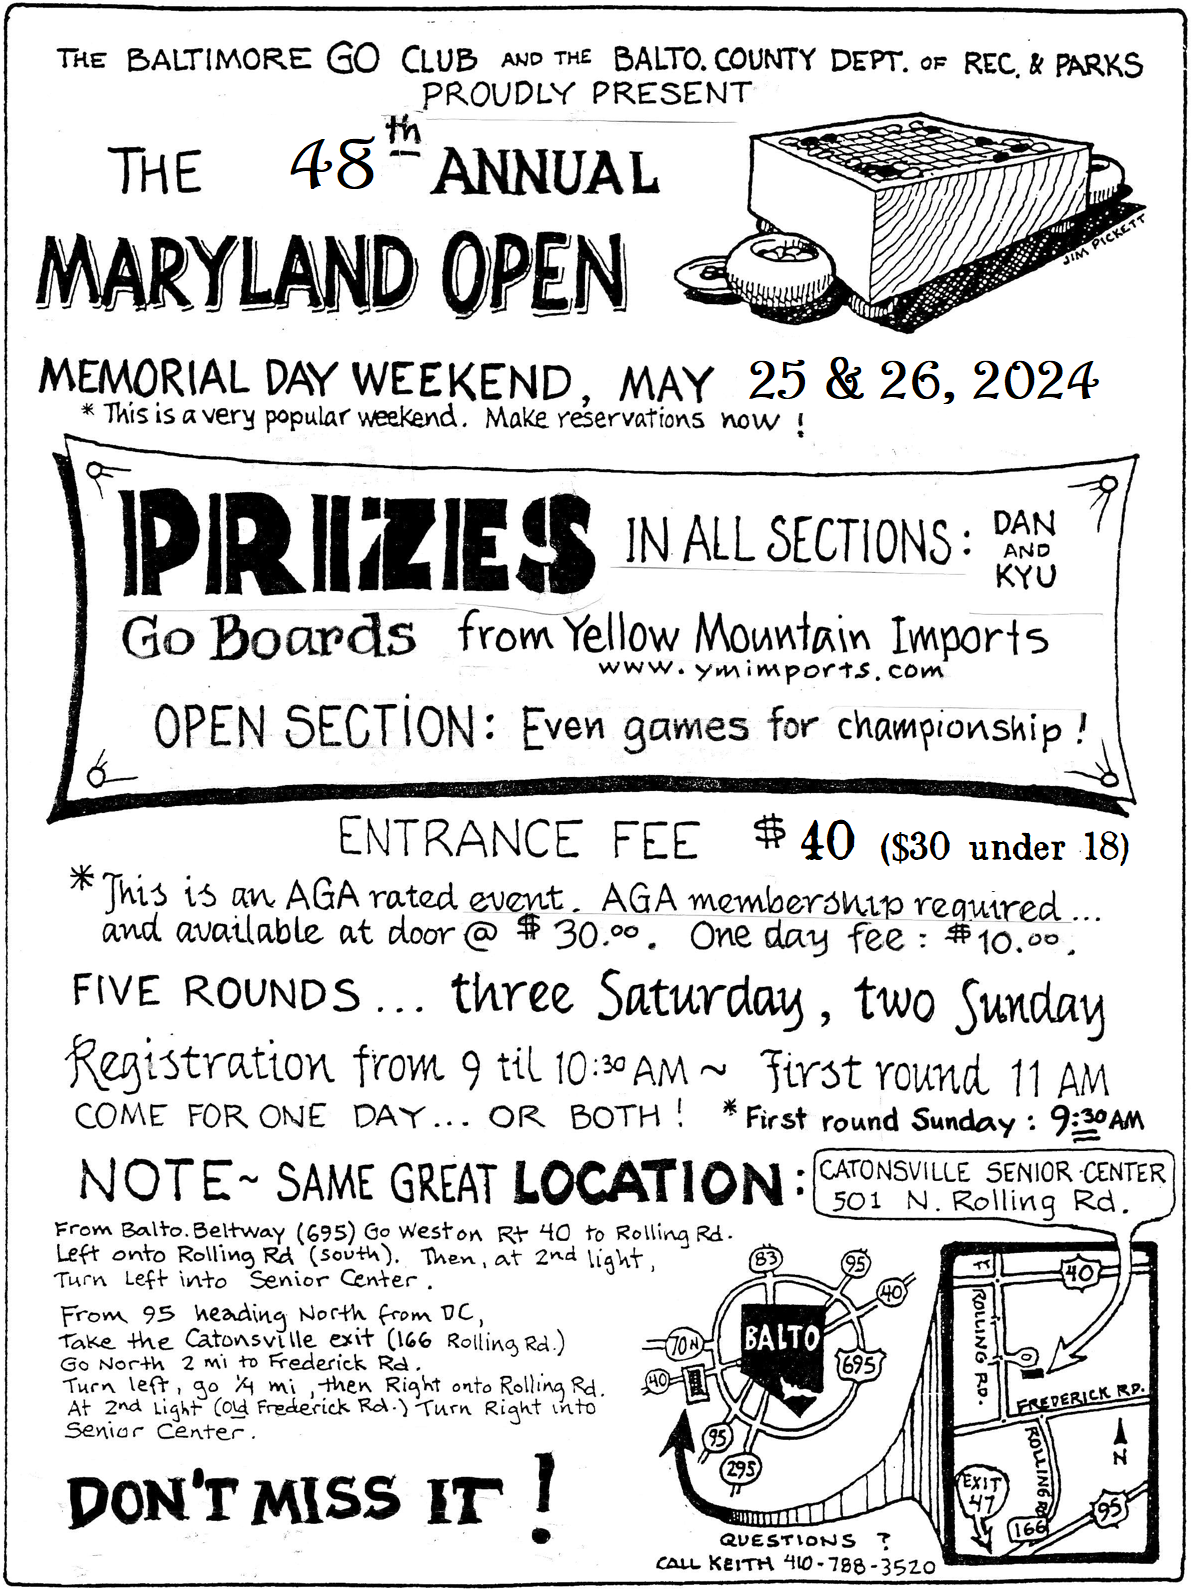 THE BALTIMORE GO CLUB AND THE BALTO. COUNTY DEPT. OF REC. & PARKS
PROUDLY PRESENT
THE 48th ANNUAL
MARYLAND OPEN
JIM PICKETT
MEMORIAL DAY WEEKEND, MAY 25 & 26, 2024
* This is a very popular weekend. Make reservations now!
PRIZES IN ALL SECTIONS: DAN AND KYU
Go Boards from Yellow Mountain Imports
www.ymimports.com
OPEN SECTION: Even games for championship!
ENTRANCE FEE $40 ($30 under 18)
* This is an AGA rated event. AGA membership required...
and available at door @ $30.00. One day fee: $10.00.
FIVE ROUNDS... three Saturday, two Sunday
Registration from 9 til 10:30 AM ~ First round 11 AM
COME FOR ONE DAY... OR BOTH! * First round Sunday: 9:30 AM
NOTE~ SAME GREAT LOCATION: CATONSVILLE SENIOR CENTER
501 N. Rolling Rd.
From Balto. Beltway (695) Go West on Rt 40 to Rolling Rd.
Left onto Rolling Rd (south). Then, at 2nd light,
Turn Left into Senior Center.
From 95 heading North from DC,
Take the Catonsville exit (166 Rolling Rd.)
Go North 2 mi to Frederick Rd.
Turn left, go 1/4 mi, then Right onto Rolling Rd.
At 2nd Light (Old Frederick Rd.) Turn Right into
Senior Center.
DON'T MISS IT!
83
95
40
70N
BALTO
695
40
95
295
40
ROLLING RD.
FREDERICK RD.
ROLLING RD
N
EXIT 47
166
95
QUESTIONS?
CALL KEITH 410-788-3520